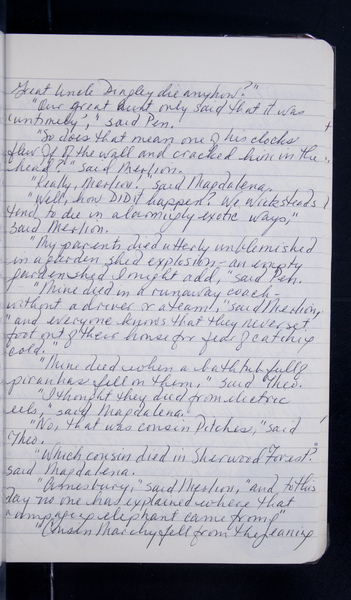 Great Uncle Dingley die anyhow?"
"Our great aunt only said that it was
'untimely'," said Pen.
"So does that mean one of his clocks
flew off the wall and cracked him in the
head?" said Merlion.
"Really, Merlion," said Magdalena.
"Well, how DID it happen? We Wicksteads
tend to die in alarmingly exotic ways,"
said Merlion.
"My parents died utterly unblemished
in a garden shed explosion - an empty
garden shed I might add," said Pen.
"Mine died in a runaway coach -
without a driver or a team," said Merlion,
"and everyone knows that they never set
foot out of their house for fear of catching
cold."
"Mine died when a bathtub full of
piranhas fell on them," said Theo.
"I thought they died from electric
eels," said Magdalena.
"No, that was cousin Pitches," said
Theo.
"Which cousin died in Sherwood Forest?"
said Magdalena.
"Amesbury," said Merlion, "and to this
day no one has explained where that
rampaging elephant came from."
"Cousin Marchy fell from the leaning